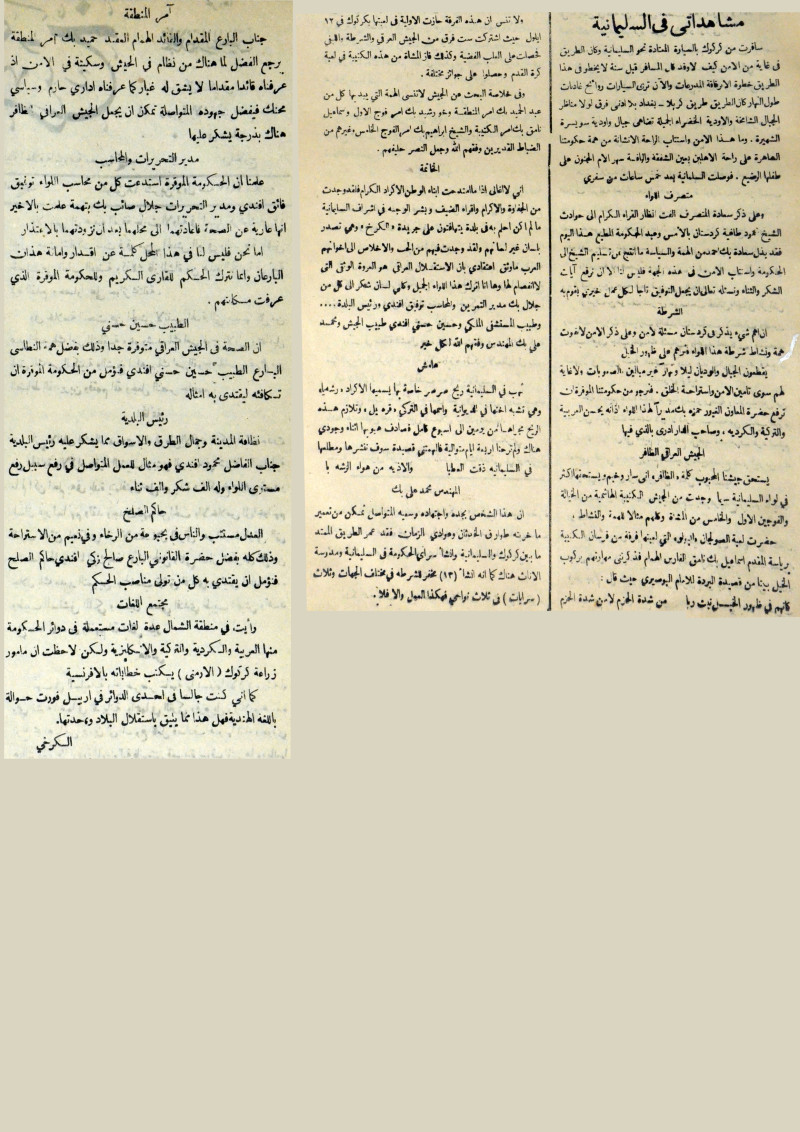 مشاهداتي في السليمانية
سافرت من كركوك بالسيارة المعتادة نحو السليمانية وكان الطريق
في غاية من الامن كيف لا وقد كان المسافر قبل سنة لا يخطو في هذا
الطريق خطوة الا رفاقة المدرعات والآن ترى السيارات رائح غاديات
طول النهار كان الطريق طريق كربلا ـ بغداد بلا ادنى فرق لولا مناظر
الجبال الشامخة والاودية الخضراء الجميلة تضاهي جبال واودية سويسرة
الشهيرة . وما هذا الامن واستتاب الراحة الا نشأة من همة حكومتنا
الساهرة على راحة الاهلين بعين الشفقة والرأفة سهر الام الحنون على
طفلها الرضيع . فوصلت السليمانية بعد خمس ساعات من سفري
متصرف اللواء
وعلى ذكر سعادة المتصرف الفت انظار القراء الكرام الى حوادث
الشيخ محمود طاغية كردستان بالامس وعبد الحكومة المطيع هذا اليوم
فقد بذل سعادة بك احمد من الهمة والسياسة ما انتج من تسليم الشيخ الى
الحكومة واستتاب الامن في هذه الجهة فليس لنا الا ان نرفع آيات
الشكر والثناء ونسئله تعالى ان يجعل التوفيق تاجا لكل عمل خيري يقوم به
الشرطة
ان اهم شيء يذكر في كردستان مسئلة الامن وعلى ذكر الامن لا يفوت
همة ونشاط شرطة هذا اللواء فتراهم على ظهور الخيل
يقطعون الجبال والوديان ليلا ونهارا غير مبالين بالصعوبات ولا غاية
لهم سوى تامين الامن واستراحة الخلق . فنرجو من حكومتنا الموقرة ان
ترفع حضرة المعاون الغيور حمزه بك مديرآ لهذا اللواء اذانه يحسن العربية
والتركية والكردية ، وصاحب اقدار ادرى بالذي فيها
الجيش العراقي الظافر
يستحق جيشنا المحبوب كلمة ـ الظافر ـ انى سار وخيم ويستحقها اكثر
في لواء السليمانية سيما وجدت من الجيش الكتيبة الهاشمية من الخيالة
والفوجين الاول والخامس من المشاة وكلهم مثالا للهمة والنشاط .
حضرت لعبة الصولجان والبولو التي لعبتها فرقة من فرسان الكتيبة
برياسة المقدم اسماعيل بك نامق الفارس الهمام فذكرتني مهارتهم بركوب
الخيل بيتا من قصيدة البردة للامام البوصيري حيث قال :
كأنهم في ظهور الخيــل نبت ربا    من شدة الحزم لا من شدة الحزم
ولا ننسى ان هذه الفرقة حازت الاولية في لعبتها بكركوك في ١٢
ايلول حيث اشتركت ست فرق من الجيش العراقي والشرطة والليفي
فحصلت على العاب الفضية وكذلك فاز المشاة من هذه الكتيبة في لعبة
كرة القدم وحصلوا على جوائز مختلفة .
وفي خلاصة البحث عن الجيش لا ننسى الهمة التي يبديها كل من
عبد الحميد بك امر المنطقة وخورشيد بك امر فوج الاول واسماعيل
نامق بك امر الكتيبة والشيخ ابراهيم بك امر الفوج الخامس وغيرهم من
الضباط القديرين وفقهم الله وجعل النصر حليفهم .
الخاتمة
اني لا اغالي اذا ما امتدحت ابناء الوطن الاكراد الكرام فلقد وجدت
من الحفاوة والاكرام واقراء الضيف وبشر الوجه في اشراف السليمانية
ما لم اكن اعلم به في بلدة يتهافتون على جريدة « الكرخ » وهي تصدر
بلسان غير لسانهم ولقد وجدت فيهم من الحب والاخلاص الى اخوانهم
العرب ما وثق اعتقادي بان الاستقلال العراقي هو العروة الوثقى التي
لا انفصام لها وها انا اترك هذا اللواء الجميل وكلي لسان شكر الى كل من
جلال بك مدير التحريرات والمحاسب توفيق افندي ورئيس البلدة ....
وطبيب المستشفى الملكي وحسين حسني افندي طبيب الجيش ومحمد
علي بك المهندس وفقهم الله لكل خير
هامش
تهب في السليمانية ريح صرصر خاصة بها يسميها الاكراد « رشه با»
وهي تشبه اختها في ... واسمها في التركي « قره يل » وتلازم هذه
الريح مجراها من يومين الى اسبوع كامل فصادف هبوبها اثناء وجودي
هناك ولم ترحنا اربعة ايام متوالية فالهمتني قصيدة سوف ننشرها ومطلعها
في السليمانيه ذقت العطايا    والاذيه من هواء الرشه با
المهندس محمد علي بك
ان هذا الشخص بجده واجتهاده وسعيه المتواصل تمكن من تعمير
ما خربته طوارق الحدثان وعوادي الزمان. فقد عمر الطريق الممتد
ما بين كركوك والسليمانية وانشأ سراي الحكومة في السليمانية ومدرسة
الاناث هناك كما انه انشأ (١٣) مخفر للشرطة في مختلف الجهات وثلاث
( سرايات ) في ثلاث نواحي فهكذا العمل والا فلا.
آمر المنطقة
جناب البارع المقدام والقائد الهمام العقيد حميد بك امر المنطقة
يرجع الفضل لما هناك من نظام في الجيش وسكينة في الامن اذ
عرفناه قائدا مقداما لا يشق له غبار كما عرفناه اداري حازم وسياسي
محنك فبفضل جهوده المتواصلة تمكن ان يجعل الجيش العراقي الظافر
هناك بدرجة يشكر عليها
مدير التحريرات والمحاسب
علمنا ان الحكومة الموقرة استدعت كل من محاسب اللواء توفيق
فائق افندي ومدير التحريرات جلال صائب بك بتهمة علمت بالاخير
انها عارية عن الصحة فاعادتهما الى محلهما بعد ان زودتهما بالاعتذار
اما نحن فليس لنا في هذا المحل كلمة عن اقتدار وامانة هذان
البارعان وانما نترك الحكم للقارئ الكريم وللحكومة الموقرة الذي
عرفت مكانتهم .
الطبيب حسين حسني
ان الصحة في الجيش العراقي متوفرة جدا وذلك بفضل همة النطاسي
البارع الطبيب حسين حسني افندي فنؤمل من الحكومة الموقرة ان
تكافئه ليقتدى به امثاله
رئيس البلدية
نظافة المدينة وجمال الطرق والاسواق مما يشكر عليه رئيس البلدية
جناب الفاضل محمود افندي فهو مثال للعمل المتواصل في رفع سبيل رفع
مستوى اللواء وله الف شكر والف ثناء
حاكم الصلح
العدل مستتب والناس في بحبوحة من الرخاء وفي نعيم من الاستراحة
وذلك كله بفضل حضرة القانوني البارع صالح زكي افندي حاكم الصلح
فنؤمل ان يقتدي به كل من تولى مناصب الحكم
مجتمع اللغات
رأيت في منطقة الشمال عدة لغات مستعملة في دوائر الحكومة
منها العربية والكردية والتركية والانكليزية ولكن لاحظت ان مامور
زراعة كركوك ( الارمني ) يكتب خطاباته بالافرنسية
كما أني كنت جالسا في احدى الدوائر في اربيل فوردت حوالة
باللغة الهندية فهل هذا مما يليق باستقلال البلاد ووحدتها.
الكرخي